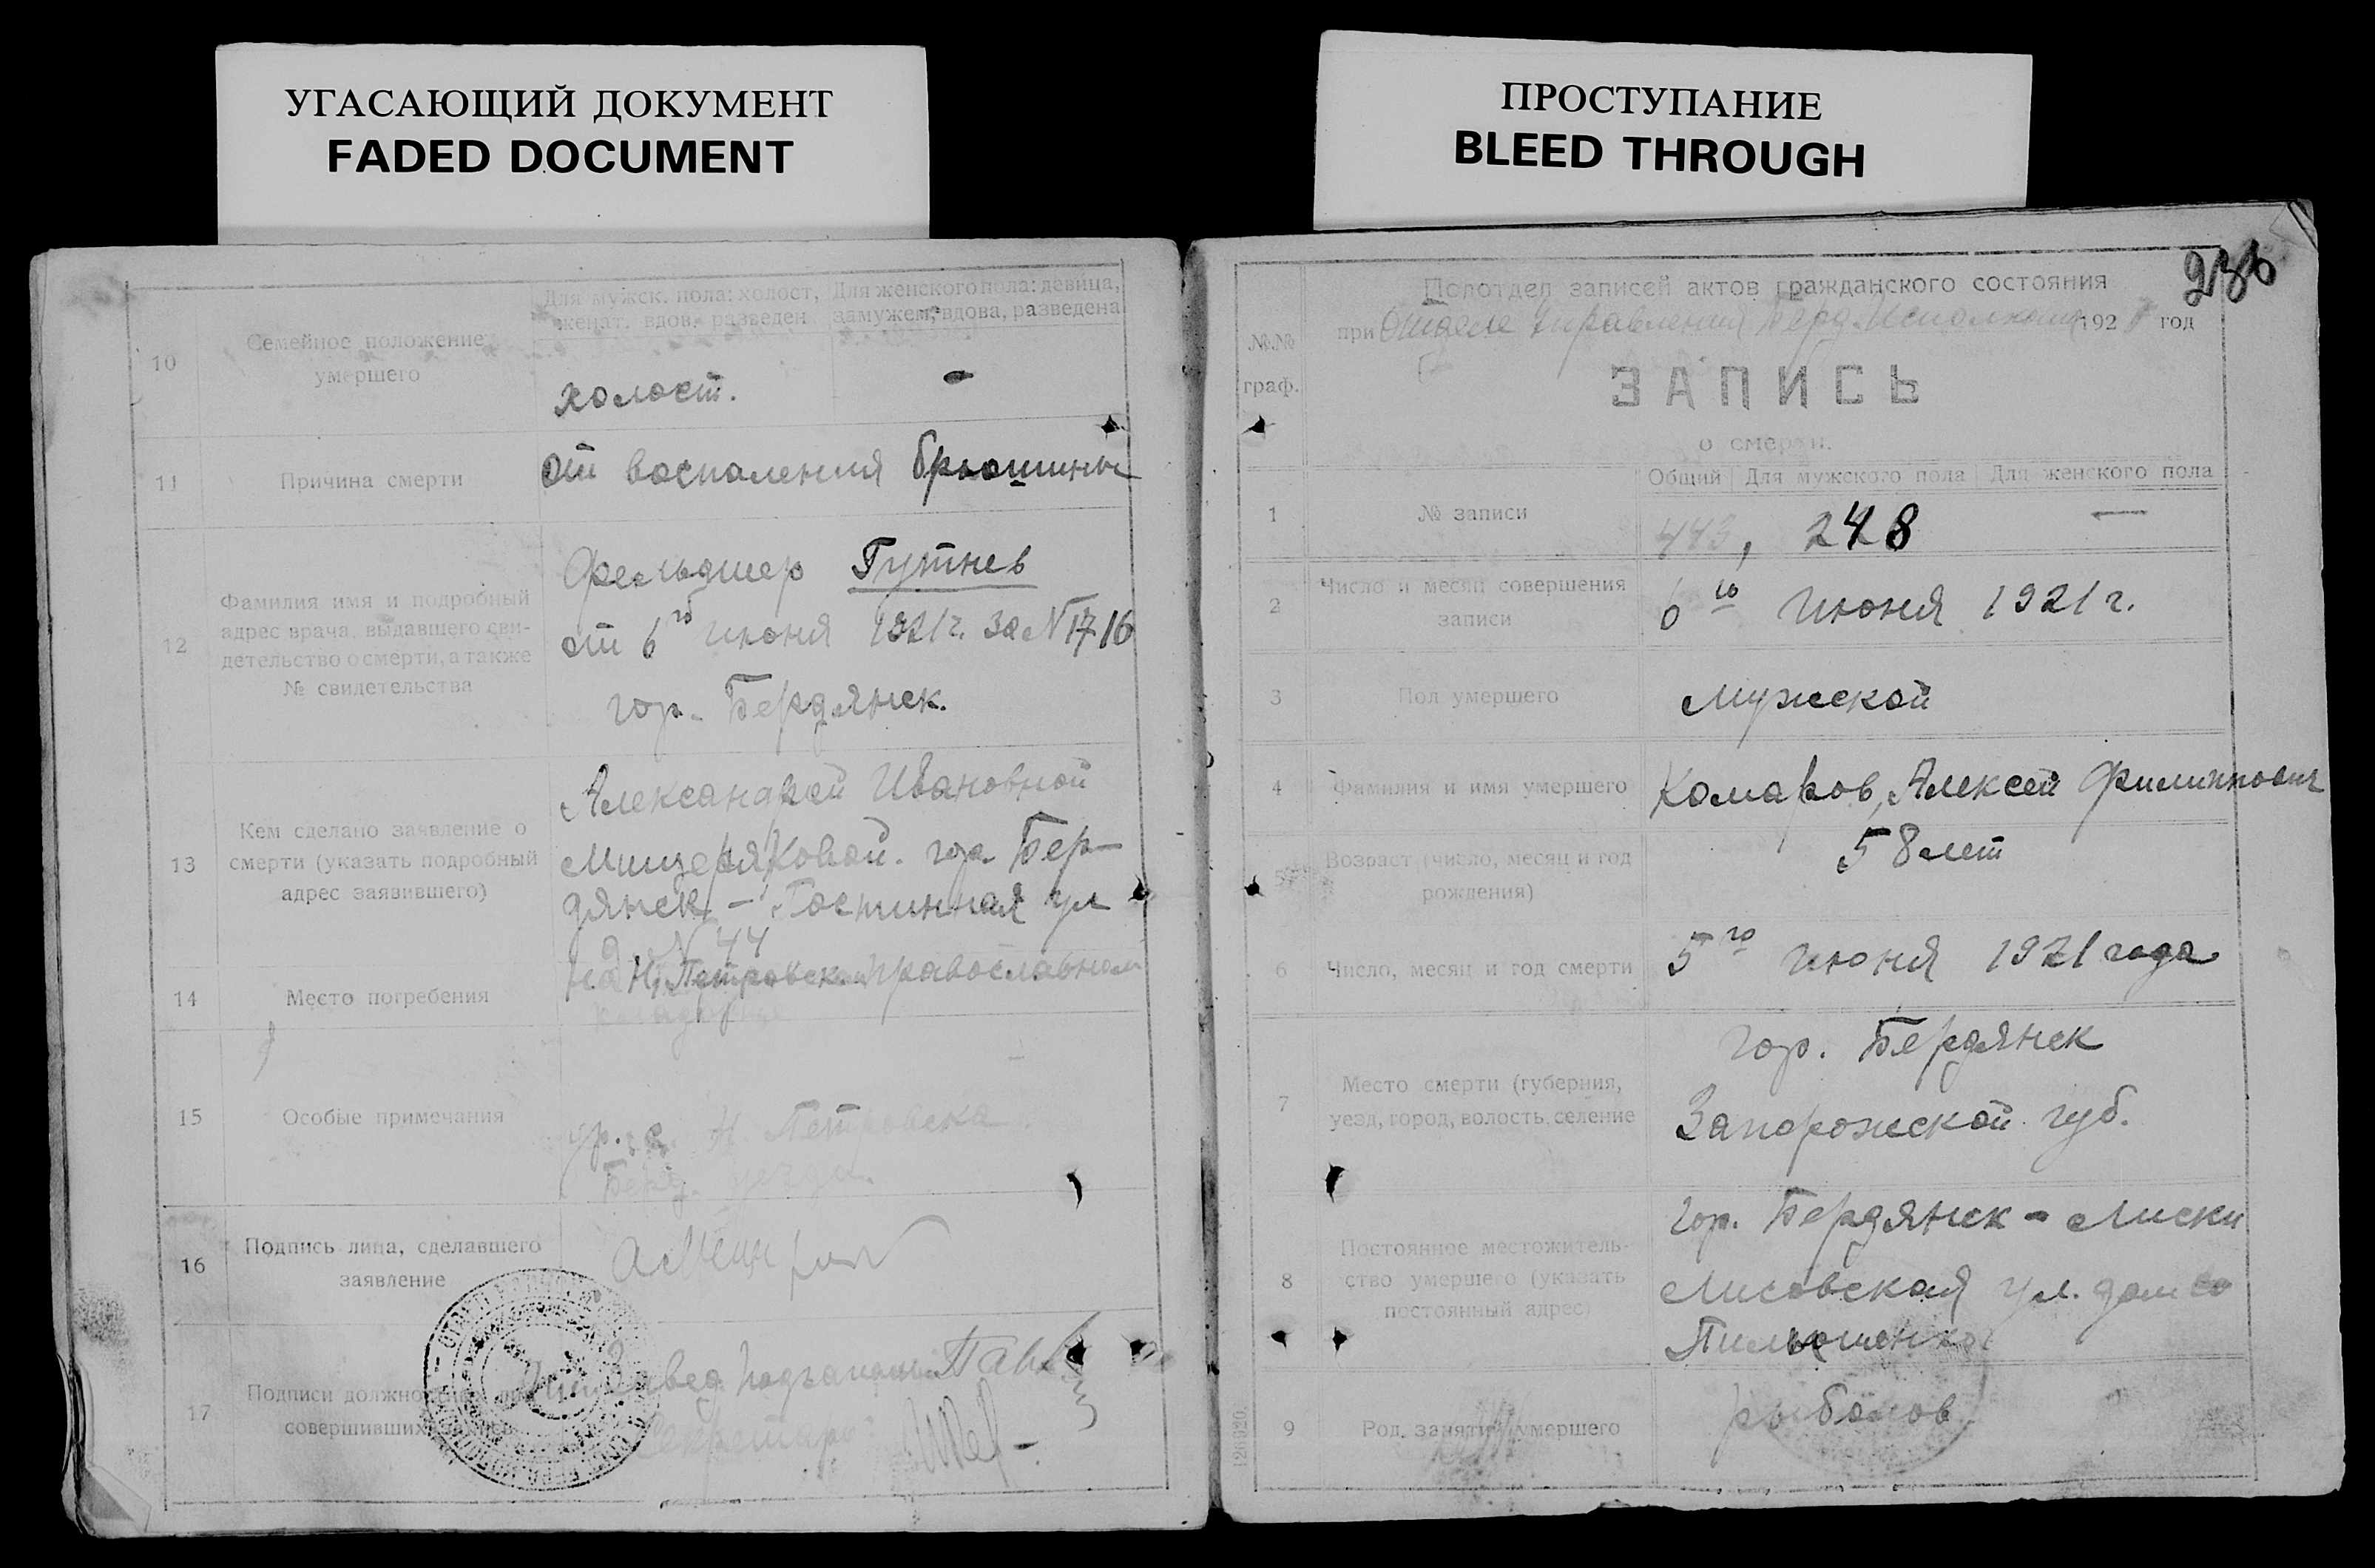 УГАСАЮЩИЙ ДОКУМЕНТ
FADED DOCUMENT
ПРОСТУПАНИЕ
BLEED THROUGH
10
Семейное положение
умершего
Для мужск. пола: холост,
женат, вдов, разведен
Для женского пола: девица,
замужем, вдова, разведена
холост.
-
11
Причина смерти
от воспаления брюшины
12
Фамилия имя и подробный
адрес врача, выдавшего сви-
детельство о смерти, а также
№ свидетельства
Фельдшер Гутнев
от 6го июня 1921 г. за N 1716
гор. Бердянск.
13
Кем сделано заявление о
смерти (указать подробный
адрес заявившего)
Александрой Ивановной
Мищеряковой. гор. Бер-
дянск, - Гостинная ул
д. N 44
14
Место погребения
на Н. Петровск. православном
кладбище
15
Особые примечания
ур. с. Н. Петровска
Берд. уезда.
16
Подпись лица, сделавшего
заявление
17
Подписи должностных лиц
совершивших запись
Завед.
Секретарь
236
№№
граф.
Подотдел записей актов гражданского состояния
при Отделе Управления Берд. Исполкома 1921 год
ЗАПИСЬ
о смерти.
Общий
Для мужского пола
Для женского пола
1
№ записи
443, 248 —
2
Число и месяц совершения
записи
6го июня 1921 г.
3
Пол умершего
мужской
4
Фамилия и имя умершего
Комаров, Алексей Филиппович
5
Возраст (число, месяц и год
рождения)
58 лет
6
Число, месяц и год смерти
5го июня 1921 года
7
Место смерти (губерния,
уезд, город, волость, селение
гор. Бердянск
Запорожской губ.
8
Постоянное местожитель-
ство умершего (указать
постоянный адрес)
гор. Бердянск - Лиски
Лисовская ул. дом
9
Род. занятий умершего
рыболов